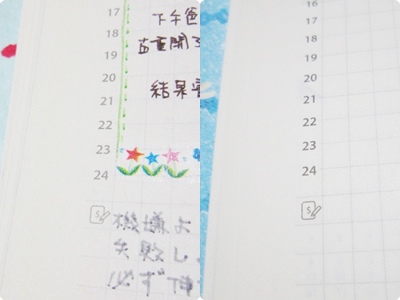 17
18
19
20
21
22
23
24
下午爸
結果
機嫌よ
失敗し
必ず
16
17
18
19
20
21
22
23
24